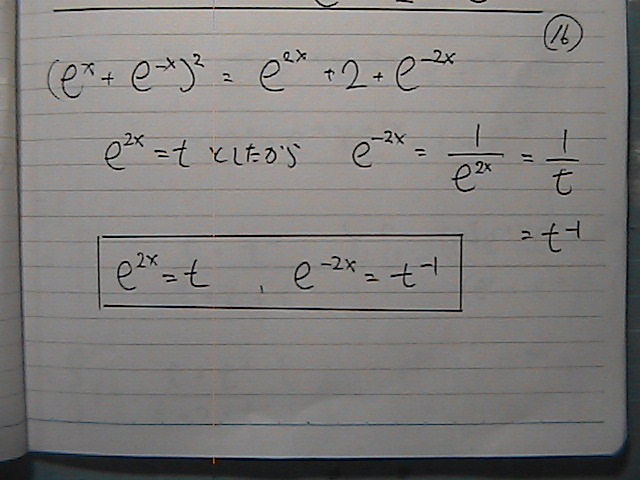 (16)
(eˣ + e⁻ˣ)² = e²ˣ + 2 + e⁻²ˣ
e²ˣ = t としたから e⁻²ˣ = 1/e²ˣ = 1/t
= t⁻¹
e²ˣ = t , e⁻²ˣ = t⁻¹